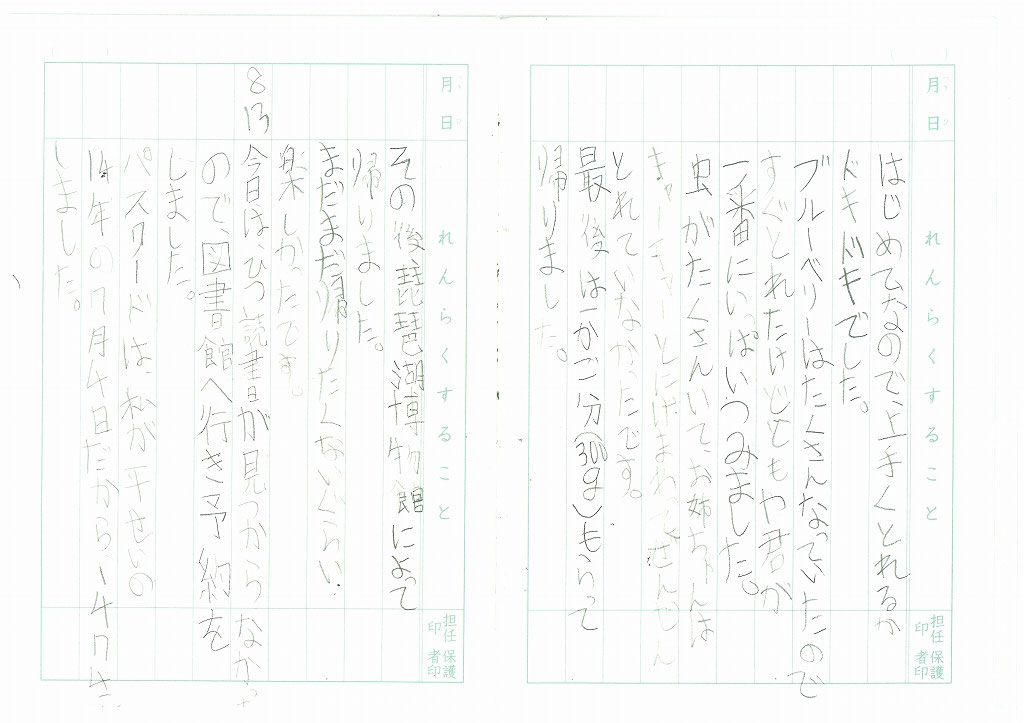 月日
れんらくすること
担任印
保護者印
はじめてなので、上手くとれるか
ドキドキでした。
ブルーベリーはたくさんなっていたので
すぐとれたけどともや君が
一番にいっぱいつみました。
虫がたくさんいて、お姉ちゃんは
キャーキャーとにげまわってぜんぜん
とれていなかったです。
最後は一かご一分(300g)もらって
帰りました。
月日
れんらくすること
担任印
保護者印
その後、琵琶湖博物館によって
帰りました。
まだまだ帰りたくないぐらい
楽しかったです。
8 13
今日は、ひつ読書が見つからなかった
ので、図書館へ行き予約を
しました。
パスワードは、私が平せいの
14年の7月4日だから、1474に
しました。